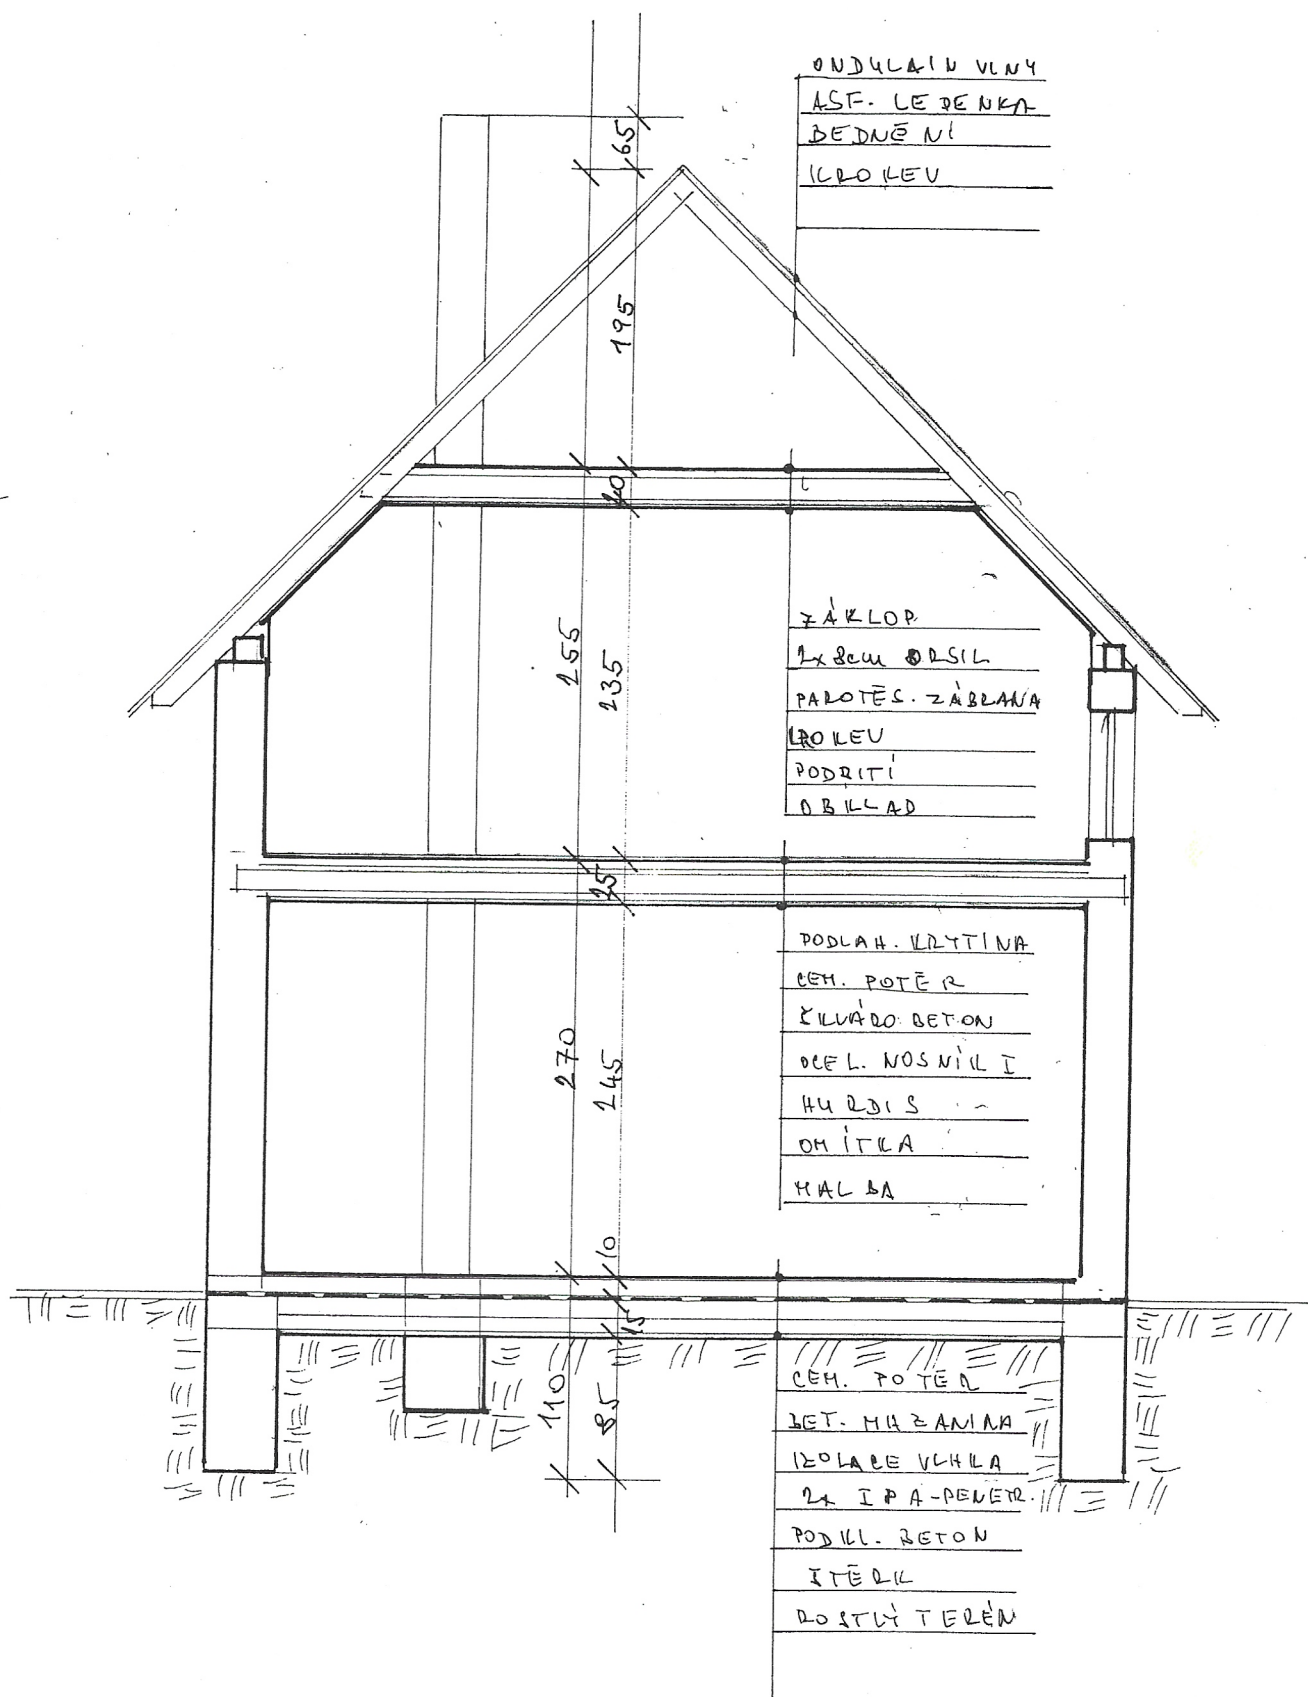 ONDULAIN VLNY
ASF. LEPENKA
BEDNĚNÍ
KROKEV
65
195
20
ZÁKLOP
2x8cm ORSIL
PAROTĚS. ZÁBRANA
KROKEV
PODBITÍ
OBKLAD
255
235
25
PODLAH. KRYTINA
CEM. POTĚR
ŠKVÁRO BETON
OCEL. NOSNÍK I
HURDIS
OMÍTKA
MALBA
270
245
10
15
110
85
CEM. POTĚR
BET. MAZANINA
IZOLACE VLHKA
2x IPA-PENETR.
PODKL. BETON
ŠTĚRK
ROSTLÝ TERÉN